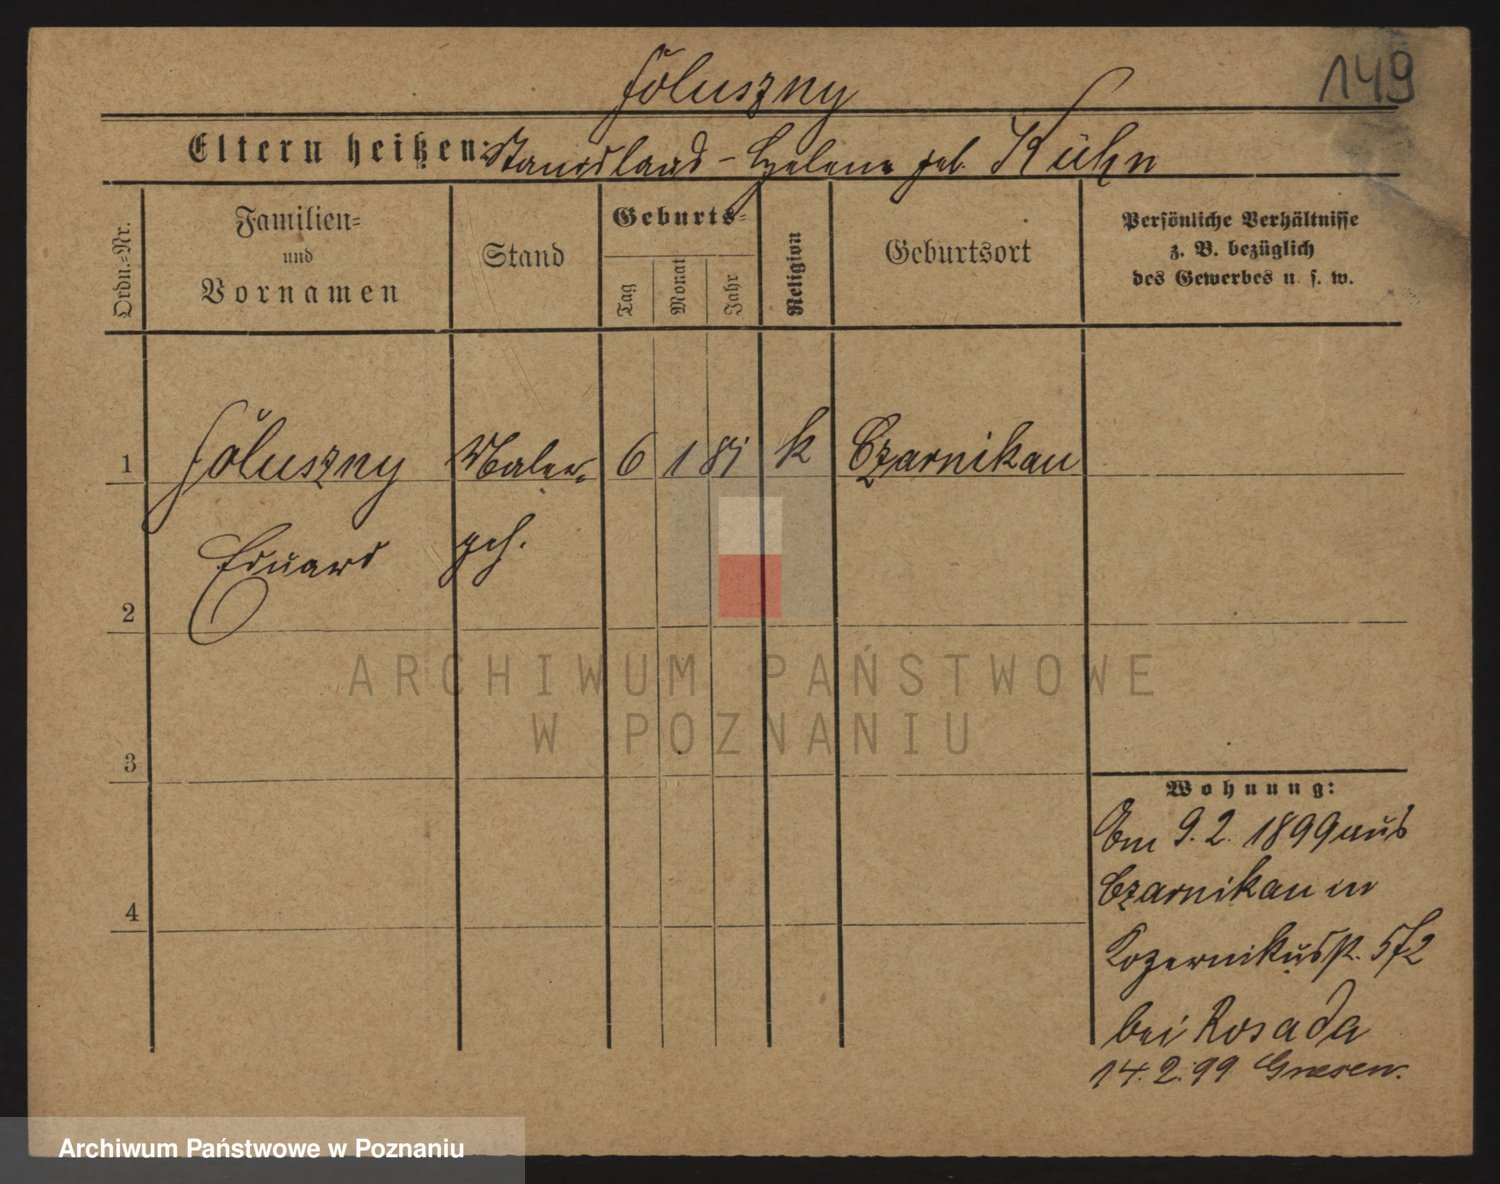 149
Eltern heißen:
geb. Kühn
Ordn.-Nr.
Familien=
und
Vornamen
Stand
Geburts=
Tag
Monat
Jahr
Religion
Geburtsort
Persönliche Verhältnisse
z. B. bezüglich
des Gewerbes u. s. w.
1
Maler
6
1
k
Czarnikau
Eduard
geh.
2
3
4
Wohnung:
9. 2. 1899 aus
Czarnikau in
bei Rosada
14.2.99 Gnesen.
ARCHIWUM PAŃSTWOWE
W POZNANIU
Archiwum Państwowe w Poznaniu